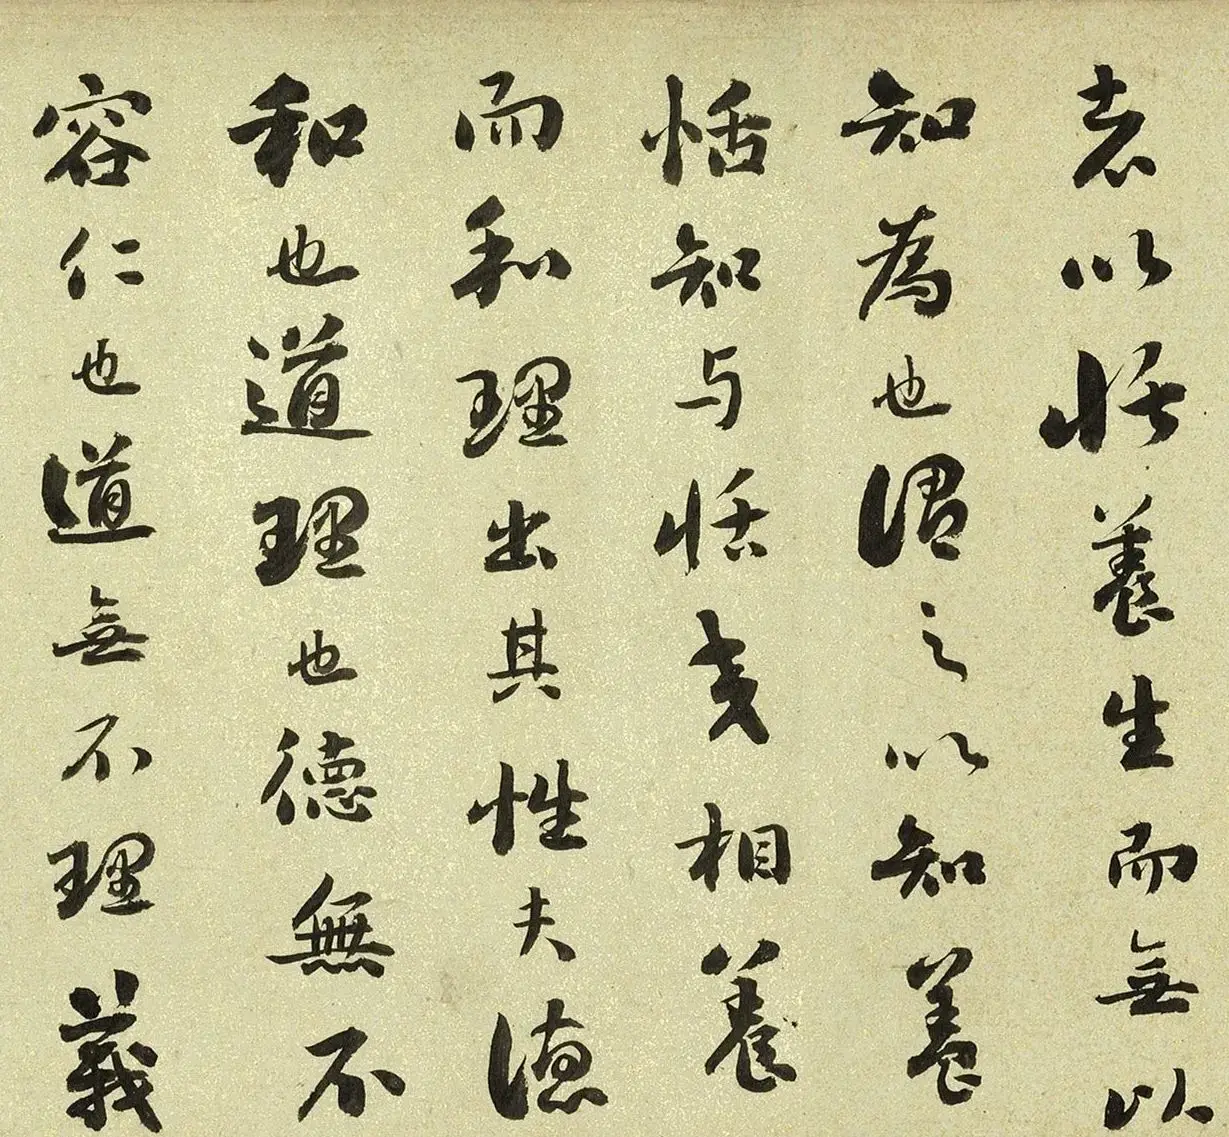 志以恬養生而無以
知為也謂之以知養
恬知与恬交相養
而和理出其性夫德
和也道理也德無不
容仁也道無不理義